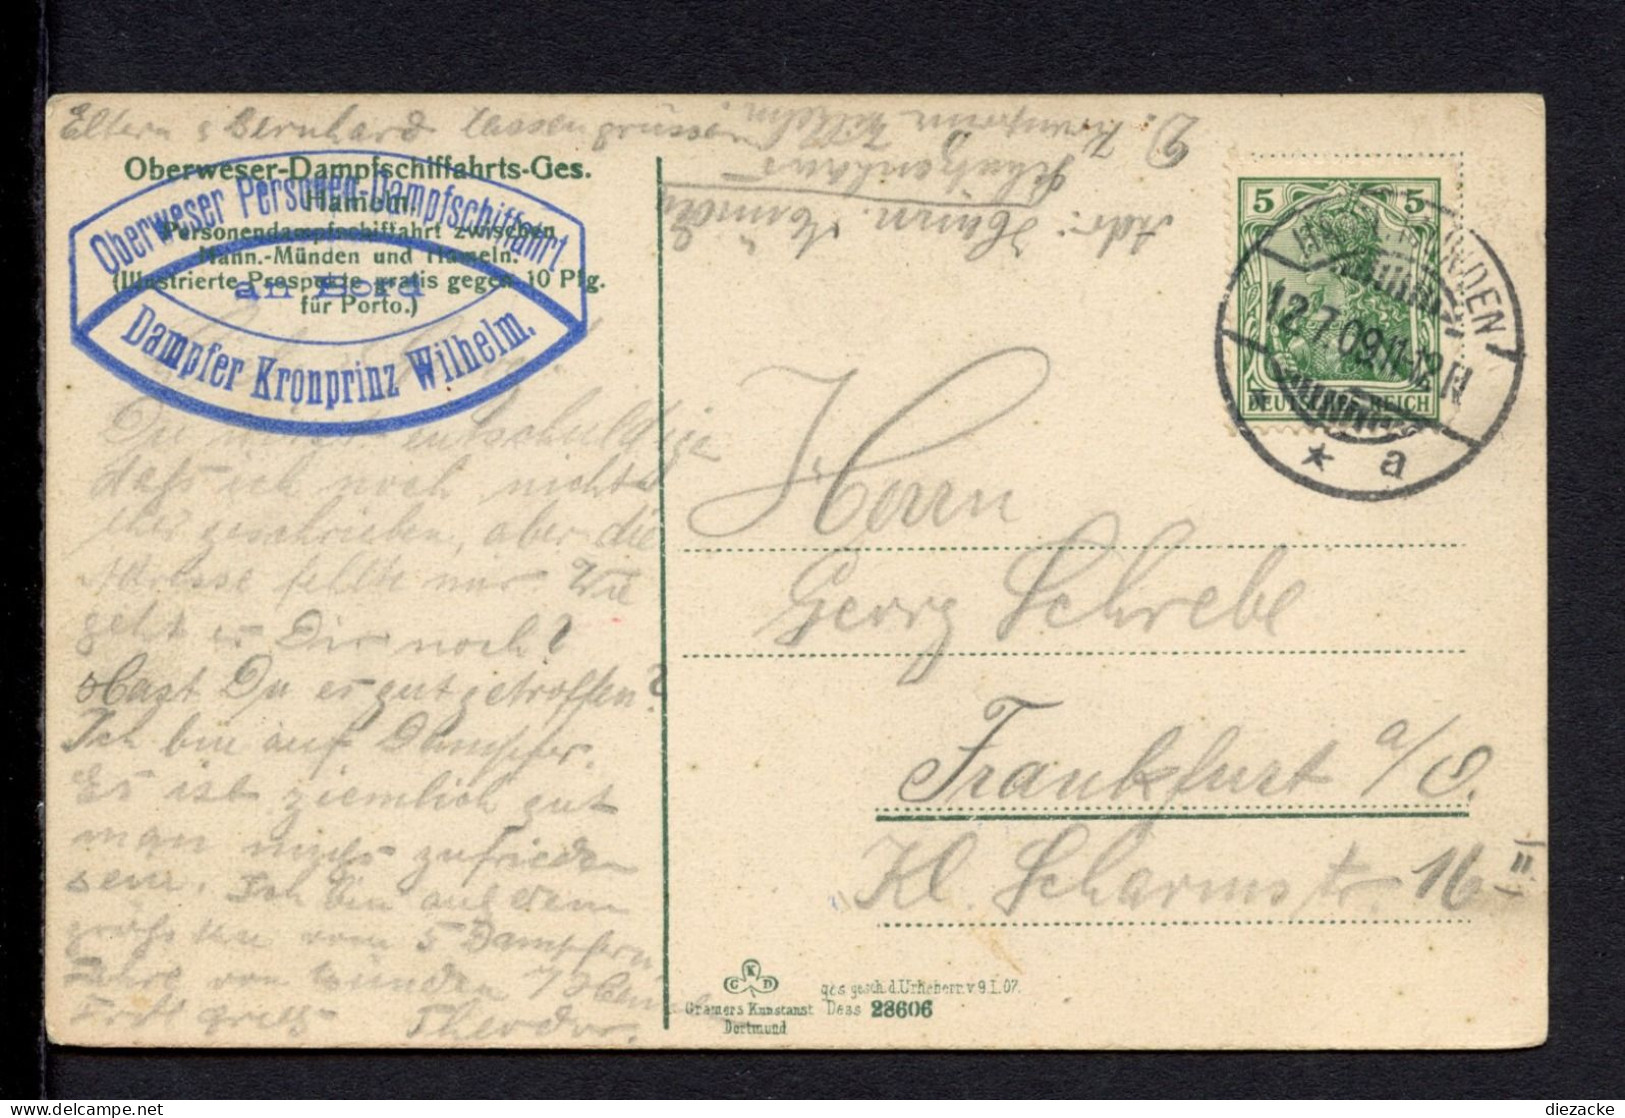 Eltern & Bernhard lassen grüssen.
Oberweser-Dampfschiffahrts-Ges.
Hameln.
Personendampfschiffahrt zwischen
Hann.-Münden und Hameln.
(Illustrierte Prospekte gratis gegen 10 Pfg.
für Porto.)
Oberweser Personen-Dampfschifffahrt
an Bord
Dampfer Kronprinz Wilhelm.
Lieber Georg!
Du musst entschuldigen
daß ich noch nicht
eher geschrieben, aber die
Adresse fehlte mir. Wie
geht es Dir noch?
Hast Du es gut getroffen?
Ich bin auf Dampfer.
Es ist ziemlich gut
man muß zufrieden
sein. Ich bin auf dem
größten von 5 Dampfern
Fahre von Münden
Frdl. Theodor.
D. Kronprinz Wilhelm
Adr: Hann. Münden
5 5
DEUTSCHES REICH
HANN. MÜNDEN
12.7.09.11-12 N
* a
Herrn
Georg Schrebe
Frankfurt a/O.
Kl. Scharrnstr. 16 II
K
G D
Cramers Kunstanst
Dortmund
ges. gesch. d. Urhebern. v. 9.I.07.
Dess 28606
diezacke